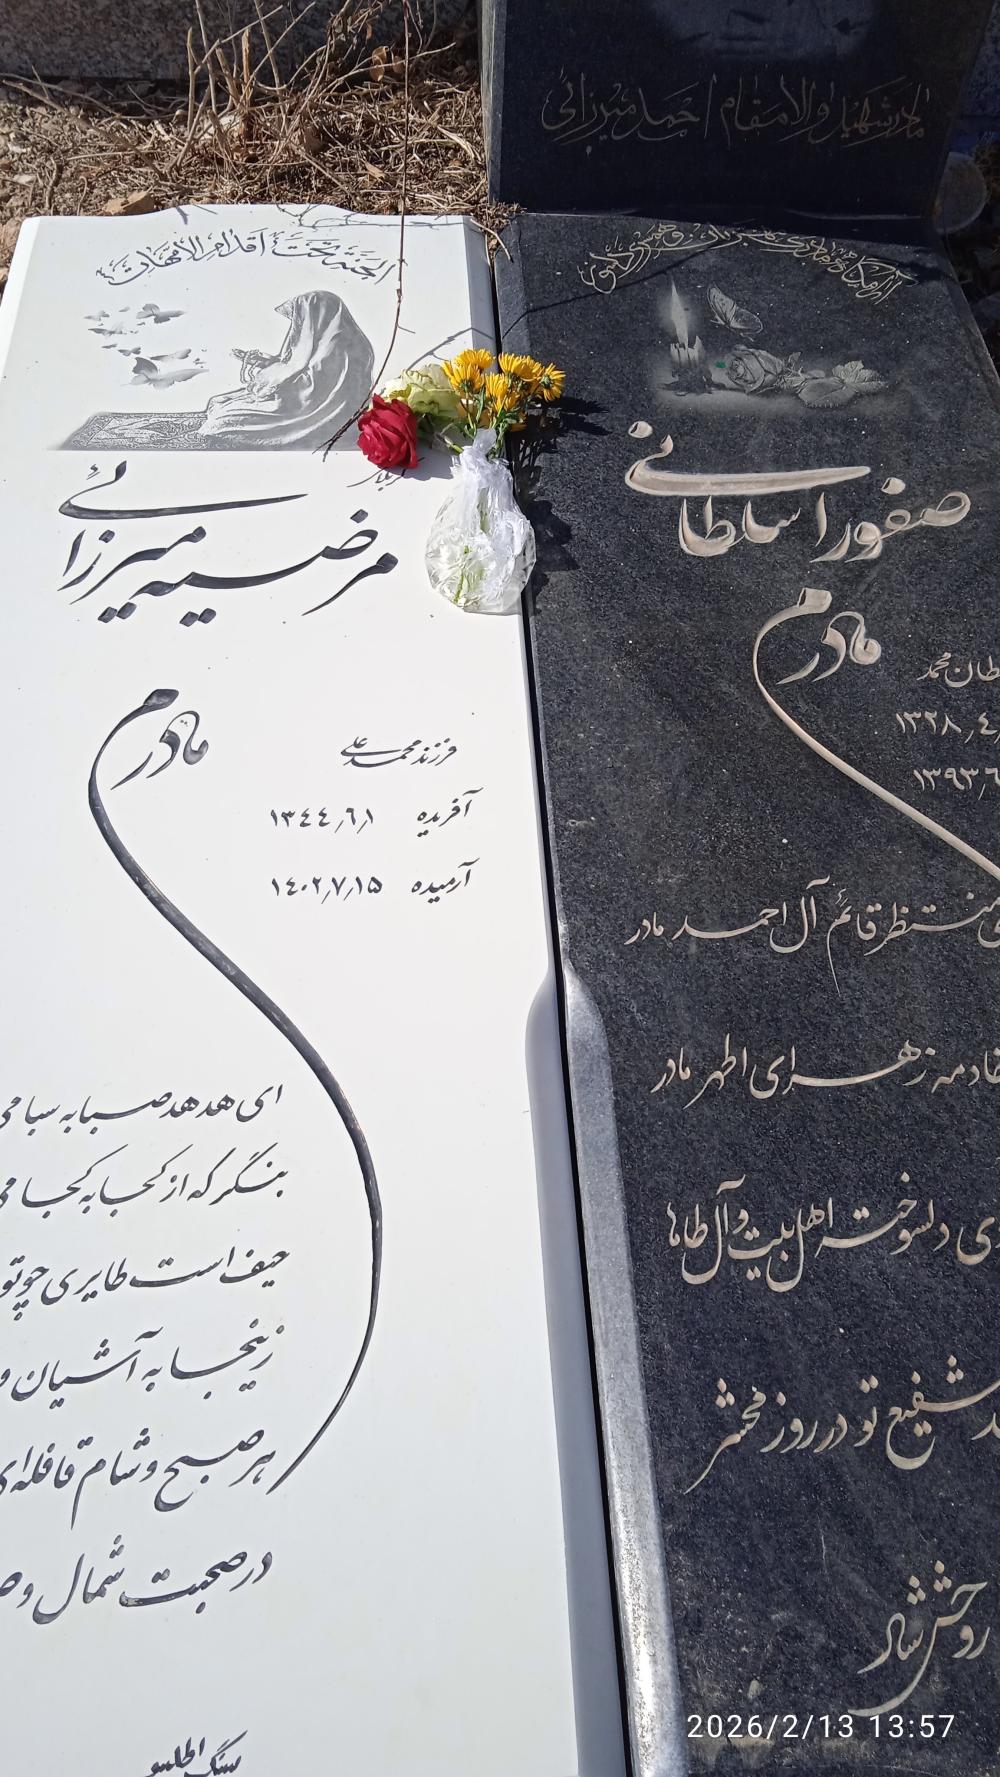 مادر شهید والامقام احمد میرزائی
الجنة تحت أقدام الأمهات
آرامگاه مادری مهربان و همسری دلسوز
کربلائی
مرضیه میرزائی
مادرم
فرزند محمد علی
آفریده ۱۳۴۴٫۶٫۱
آرمیده ۱۴۰۲٫۷٫۱۵
ای هدهد صبا به سبا می
بنگر که از کجا به کجا می
حیف است طایری چو تو
زینجا به آشیان و
هر صبح و شام قافله‌ای
در صحبت شمال و ص
سنگ اطلس
صفورا سلطانی
مادرم
طان محمد
۱۳۲۸٫۴٫
۱۳۹۳٫۶
منتظر قائم آل احمد مادر
خادمه زهرای اطهر مادر
ی دلسوخته اهل بیت و آل طاها
شفیع تو در روز محشر
روحش شاد
2026/2/13 13:57